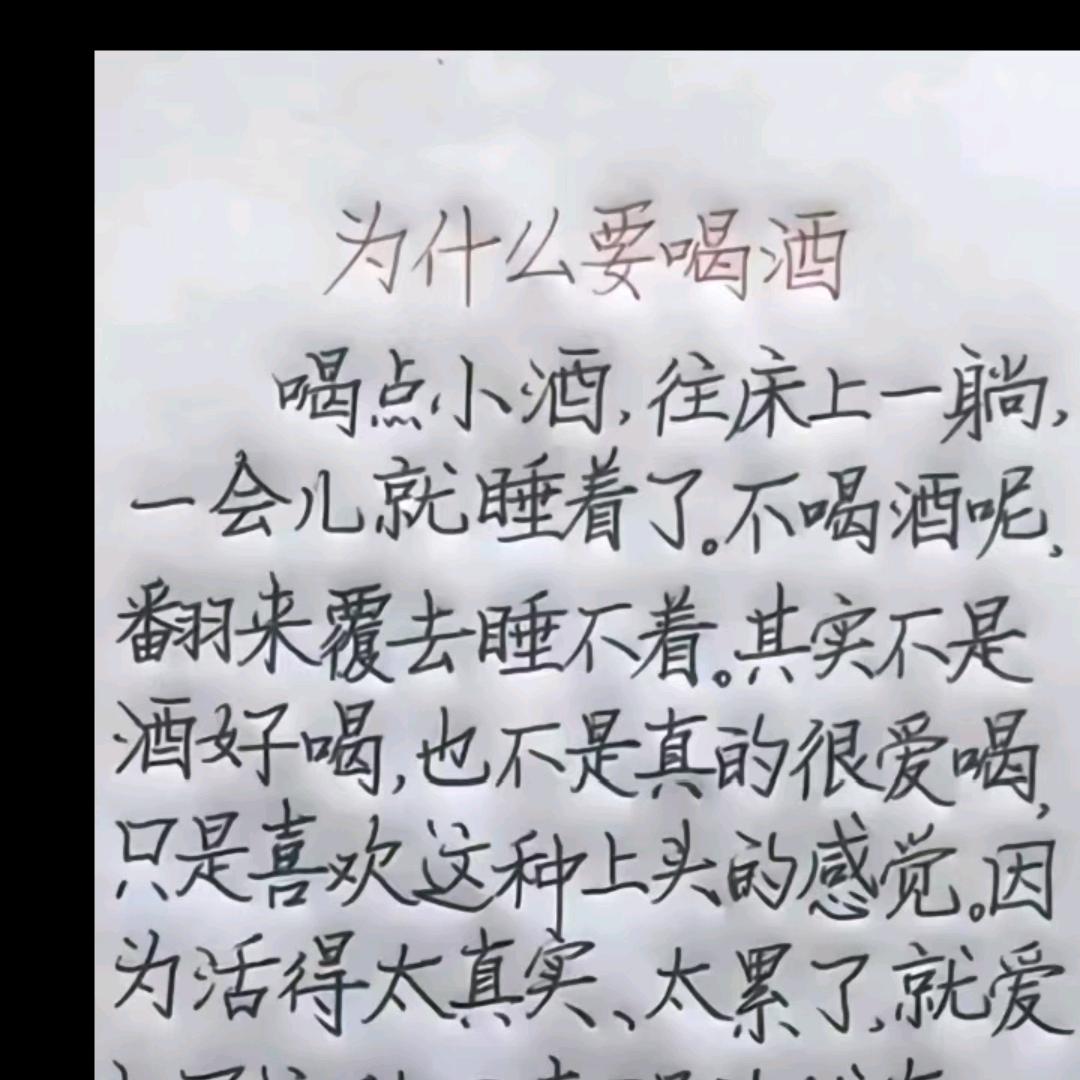 为什么要喝酒
喝点小酒,往床上一躺,
一会儿就睡着了。不喝酒呢,
翻来覆去睡不着。其实不是
酒好喝,也不是真的很爱喝,
只是喜欢这种上头的感觉。因
为活得太真实、太累了,就爱